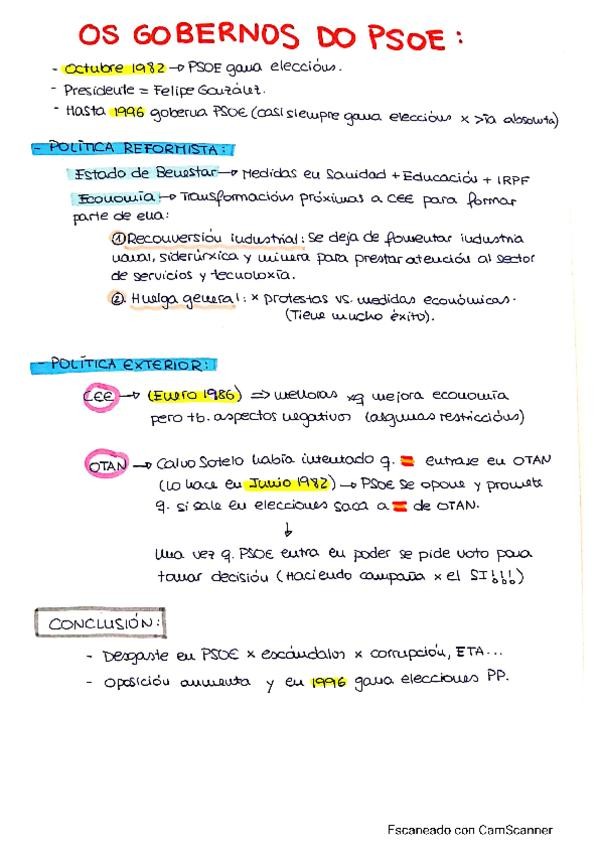 OS GOBERNOS DO PSOE:
- Octubre 1982 → PSOE gana eleccións.
- Presidente = Felipe González.
- Hasta 1996 goberna PSOE (casi siempre gana eleccións x >ía absoluta)
- POLÍTICA REFORMISTA:
Estado de Benestar → Medidas en Sanidad + Educación + IRPF
Economía → Transformacións próximas a CEE para formar
parte de ella:
① Reconversión industrial: Se deja de fomentar industria
naval, siderúrxica y minera para prestar atención al sector
de servicios y tecnoloxía.
②. Huelga general: x protestas vs. medidas económicas.
(Tiene mucho éxito).
- POLÍTICA EXTERIOR:
CEE → (Enero 1986) => melloras xq mejora economía
pero tb. aspectos negativos (algunas restriccións)
OTAN → Calvo Sotelo había intentado q. 🇪🇸 entrase en OTAN
(Lo hace en Junio 1982) → PSOE se opone y promete
q. si sale en elecciones saca a 🇪🇸 de OTAN.
↓
Una vez q. PSOE entra en poder se pide voto para
tomar decisión (Haciendo campaña x el SI!!!)
CONCLUSIÓN:
- Desgaste en PSOE x escándalos x corrupción, ETA...
- Oposición aumenta y en 1996 gana elecciones PP.
Escaneado con CamScanner